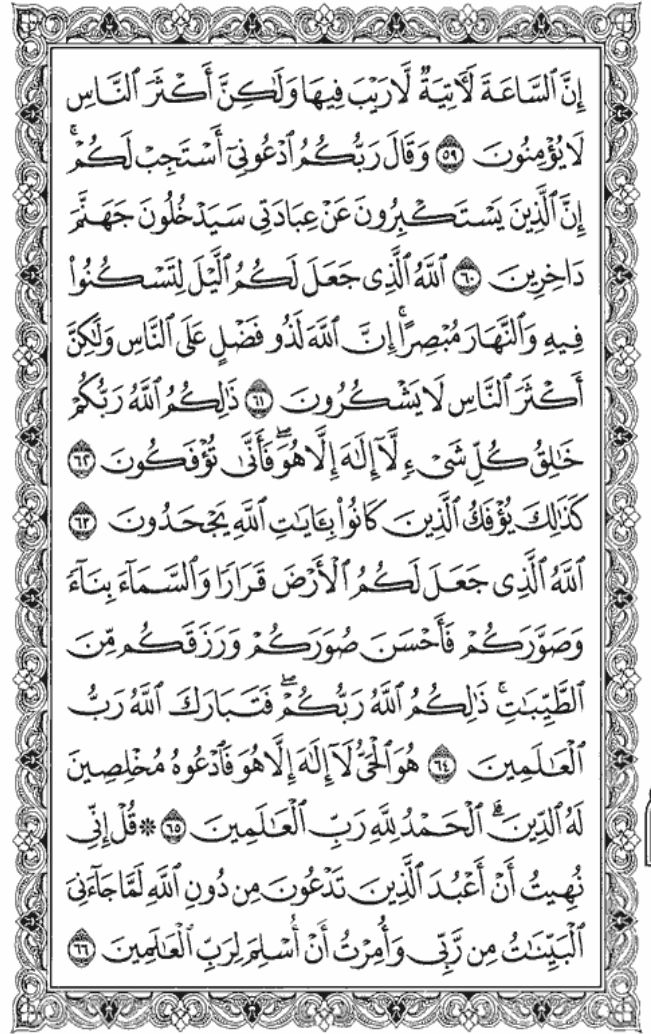 إِنَّ ٱلسَّاعَةَ لَـَٔاتِيَةٌ لَّا رَيْبَ فِيهَا وَلَـٰكِنَّ أَكْثَرَ ٱلنَّاسِ
لَا يُؤْمِنُونَ ٥٩ وَقَالَ رَبُّكُمُ ٱدْعُونِىٓ أَسْتَجِبْ لَكُمْ ۚ
إِنَّ ٱلَّذِينَ يَسْتَكْبِرُونَ عَنْ عِبَادَتِى سَيَدْخُلُونَ جَهَنَّمَ
دَاخِرِينَ ٦٠ ٱللَّهُ ٱلَّذِى جَعَلَ لَكُمُ ٱلَّيْلَ لِتَسْكُنُوا۟
فِيهِ وَٱلنَّهَارَ مُبْصِرًا ۚ إِنَّ ٱللَّهَ لَذُو فَضْلٍ عَلَى ٱلنَّاسِ وَلَـٰكِنَّ
أَكْثَرَ ٱلنَّاسِ لَا يَشْكُرُونَ ٦١ ذَٰلِكُمُ ٱللَّهُ رَبُّكُمْ
خَـٰلِقُ كُلِّ شَىْءٍ لَّآ إِلَـٰهَ إِلَّا هُوَ ۖ فَأَنَّىٰ تُؤْفَكُونَ ٦٢
كَذَٰلِكَ يُؤْفَكُ ٱلَّذِينَ كَانُوا۟ بِـَٔايَـٰتِ ٱللَّهِ يَجْحَدُونَ ٦٣
ٱللَّهُ ٱلَّذِى جَعَلَ لَكُمُ ٱلْأَرْضَ قَرَارًا وَٱلسَّمَآءَ بِنَآءً
وَصَوَّرَكُمْ فَأَحْسَنَ صُوَرَكُمْ وَرَزَقَكُم مِّنَ
ٱلطَّيِّبَـٰتِ ۚ ذَٰلِكُمُ ٱللَّهُ رَبُّكُمْ ۖ فَتَبَارَكَ ٱللَّهُ رَبُّ
ٱلْعَـٰلَمِينَ ٦٤ هُوَ ٱلْحَىُّ لَآ إِلَـٰهَ إِلَّا هُوَ فَٱدْعُوهُ مُخْلِصِينَ
لَهُ ٱلدِّينَ ۗ ٱلْحَمْدُ لِلَّهِ رَبِّ ٱلْعَـٰلَمِينَ ٦٥ ۞ قُلْ إِنِّى
نُهِيتُ أَنْ أَعْبُدَ ٱلَّذِينَ تَدْعُونَ مِن دُونِ ٱللَّهِ لَمَّا جَآءَنِىَ
ٱلْبَيِّنَـٰتُ مِن رَّبِّى وَأُمِرْتُ أَنْ أُسْلِمَ لِرَبِّ ٱلْعَـٰلَمِينَ ٦٦